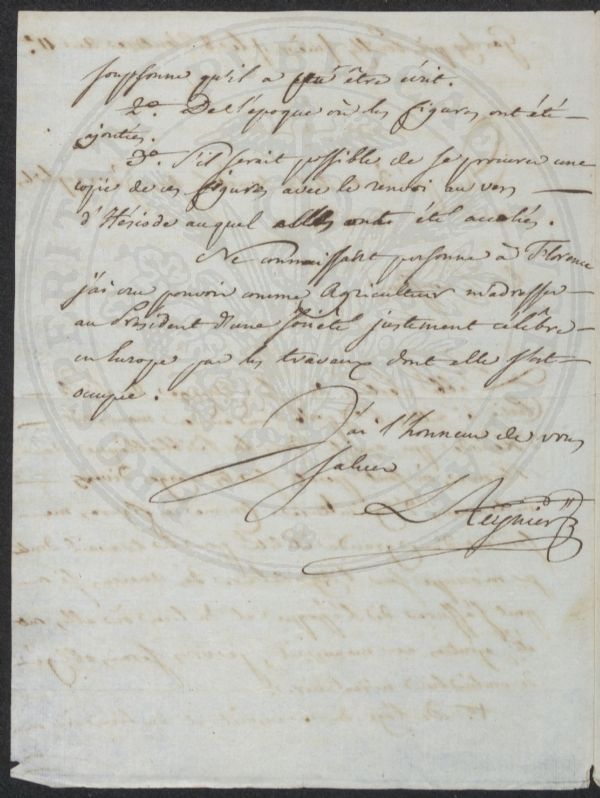 souppsonne qu'il a pu être écrit.
2º. De l'époque où les figures ont été
ajoutées.
3º. S'il serait possible de se procurer une
copie de ces figures avec le renvoi au vers
d'Hésiode auquel elles ont été accolées.
Ne connaissant personne à Florence
j'ai cru pouvoir comme Agriculteur m'adresser
au Président d'une Société justement célèbre
en Europe par les travaux dont elle s'est
occupée.
J'ai l'honneur de vous
saluer
L Reynier